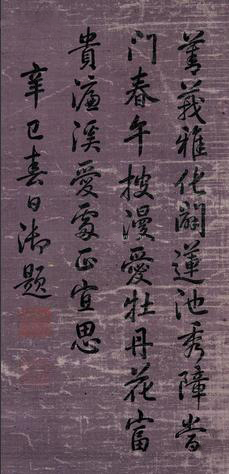 菁莪雅化闢蓮池秀障當
門春午披漫愛牡丹花富
貴濂溪愛處正宜思
辛巳春日御題